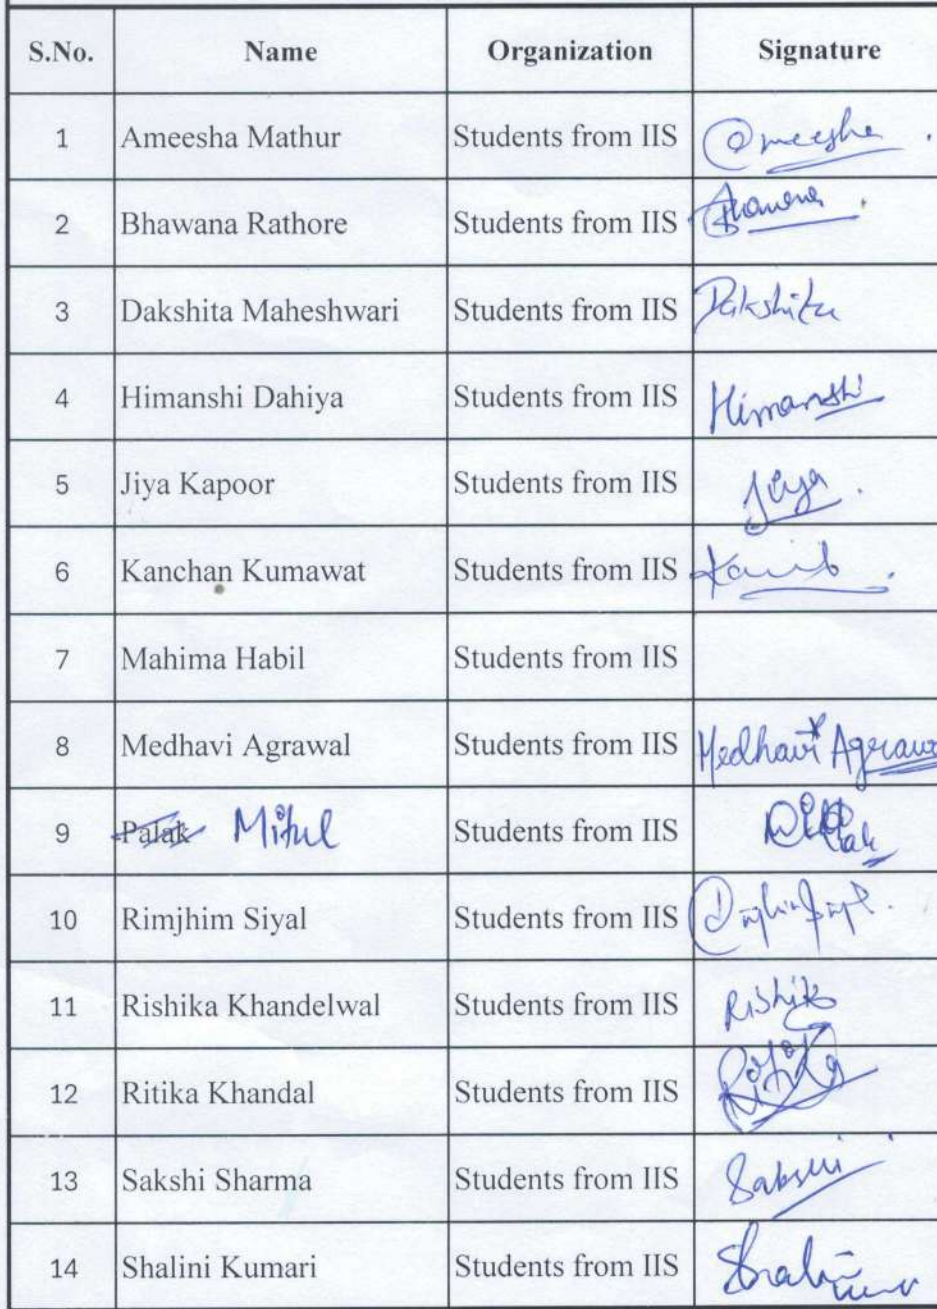 S.No. Name Organization Signature
1 Ameesha Mathur Students from IIS Ameesha
2 Bhawana Rathore Students from IIS Bhawana
3 Dakshita Maheshwari Students from IIS Dakshita
4 Himanshi Dahiya Students from IIS Himanshi
5 Jiya Kapoor Students from IIS Jiya
6 Kanchan Kumawat Students from IIS
7 Mahima Habil Students from IIS
8 Medhavi Agrawal Students from IIS Medhavi Agrawa
9 Palak Mitul Students from IIS
10 Rimjhim Siyal Students from IIS
11 Rishika Khandelwal Students from IIS Rishika
12 Ritika Khandal Students from IIS Ritika
13 Sakshi Sharma Students from IIS Sakshi
14 Shalini Kumari Students from IIS Shalini